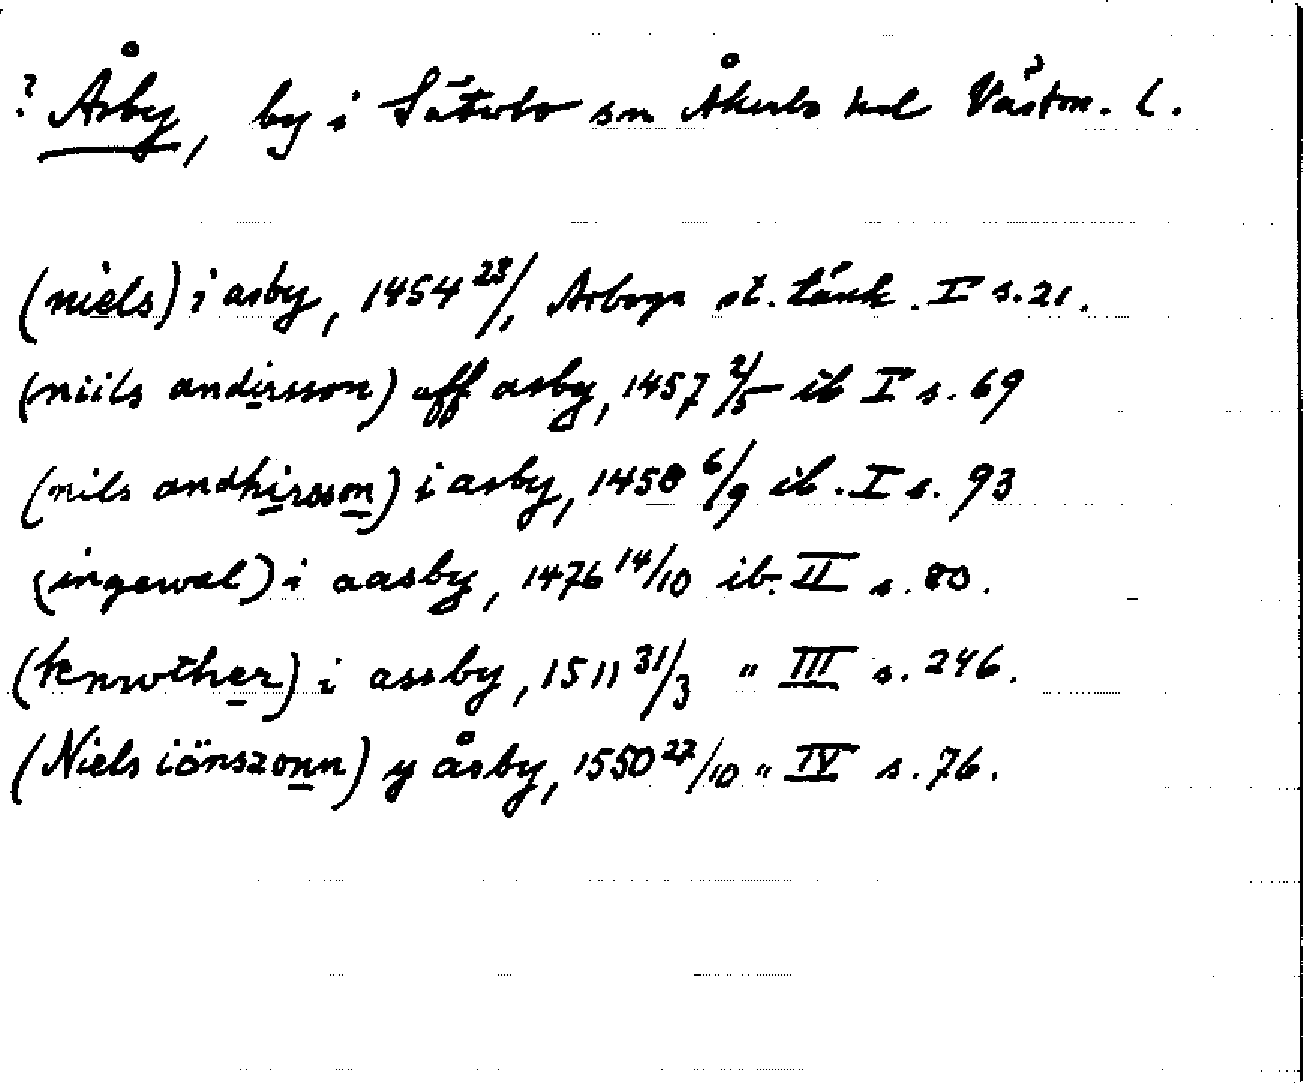 ? Åsby, by i Säterbo sn Åkerbo hd Västm. l.
(niels) i asby, 1454 28/1, Arboga st. tänk. I s. 21.
(niils andirsson) aff asby, 1457 2/5 ib I s. 69
(nils andhirsson) i asby, 1458 6/9 ib. I s. 93
(ingewal) i aasby, 1476 14/10 ib. II s. 80.
i assby, 1511 31/3 " III s. 246.
(Niels iönszonn) y åsby, 1550 27/10 " IV s. 76.